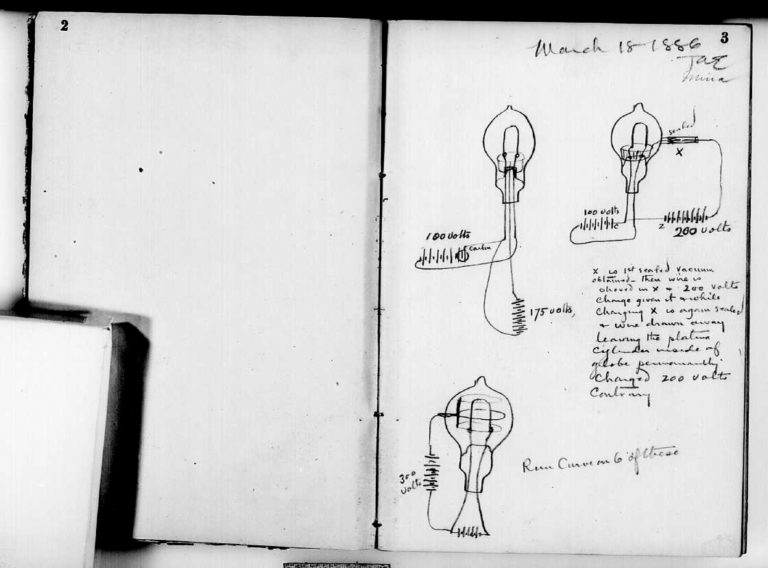 2
3
March 18 1886
TAE
Mina
sealed
X
100 volts
carbon
175 volts,
100 volts
C
Z
200 volts
X is 1st sealed vacuum
obtained - then wire is
shoved in X & 200 volts
Charge given it & while
Charging X is again sealed
& wire drawn away
leaving the platina
Cylinder inside of
globe permanently
Charged 200 volts
Contrary
300
volts
Run Curve on 6 of these